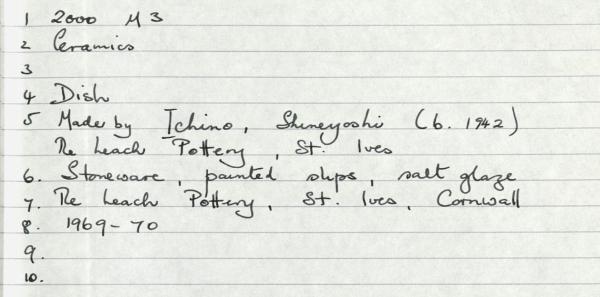 1 2000 M 3
2 Ceramics
3
4 Dish
5 Made by Ichino, Shineyoshi (b. 1942)
The Leach Pottery, St. Ives
6. Stoneware, painted slips, salt glaze
7. The Leach Pottery, St. Ives, Cornwall
8. 1969-70
9.
10.